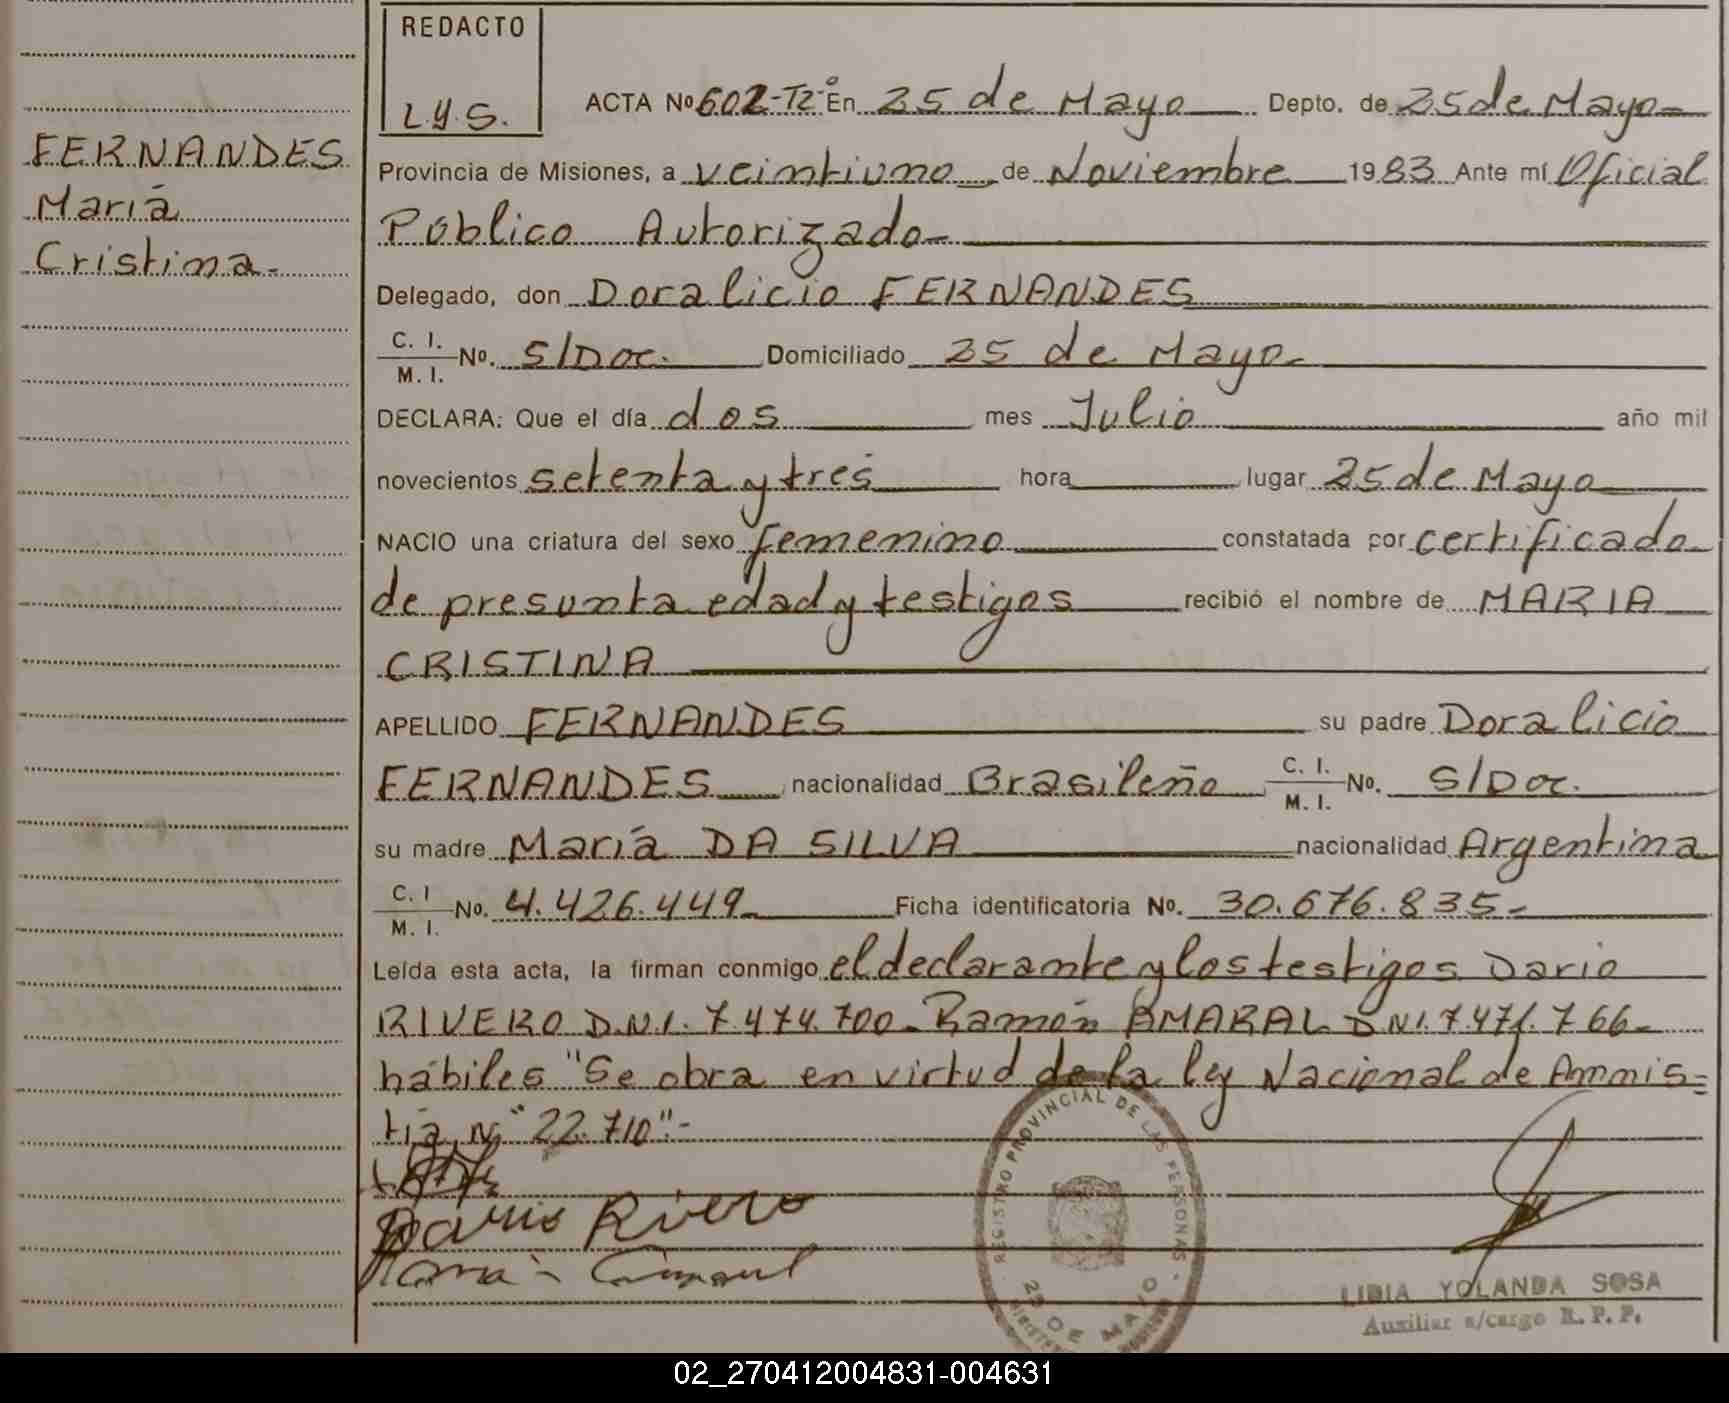 REDACTO
L.Y.S.
FERNANDES
María
Cristina.
ACTA Nº 602-Tº2- En 25 de Mayo Depto. de 25 de Mayo
Provincia de Misiones, a veintiuno de Noviembre 1983 Ante mí Oficial
Público Autorizado
Delegado, don Doralicio FERNANDES
C. I.
M. I.
No. S/Doc. Domiciliado 25 de Mayo
DECLARA: Que el día dos mes Julio año mil
novecientos setenta y tres hora lugar 25 de Mayo
NACIO una criatura del sexo femenino constatada por certificado
de presunta edad y testigos recibió el nombre de MARIA
CRISTINA
APELLIDO FERNANDES su padre Doralicio
FERNANDES nacionalidad Brasileño C. I. M. I. No. S/Doc.
su madre María DA SILVA nacionalidad Argentina
C. I M. I. No. 4.426.449 Ficha identificatoria No. 30.676.835-
Leída esta acta, la firman conmigo el declarante y los testigos Dario
RIVERO D.N.I. 7.474.700- Ramón AMARAL DNI. 7.471.766-
hábiles "Se obra en virtud de la ley Nacional de Amnis=
tía N "22.710"-
Dario Rivero
REGISTRO PROVINCIAL DE LAS PERSONAS
25 DE MAYO
LIDIA YOLANDA SOSA
Auxiliar a/cargo R. P. P.
02_270412004831-004631